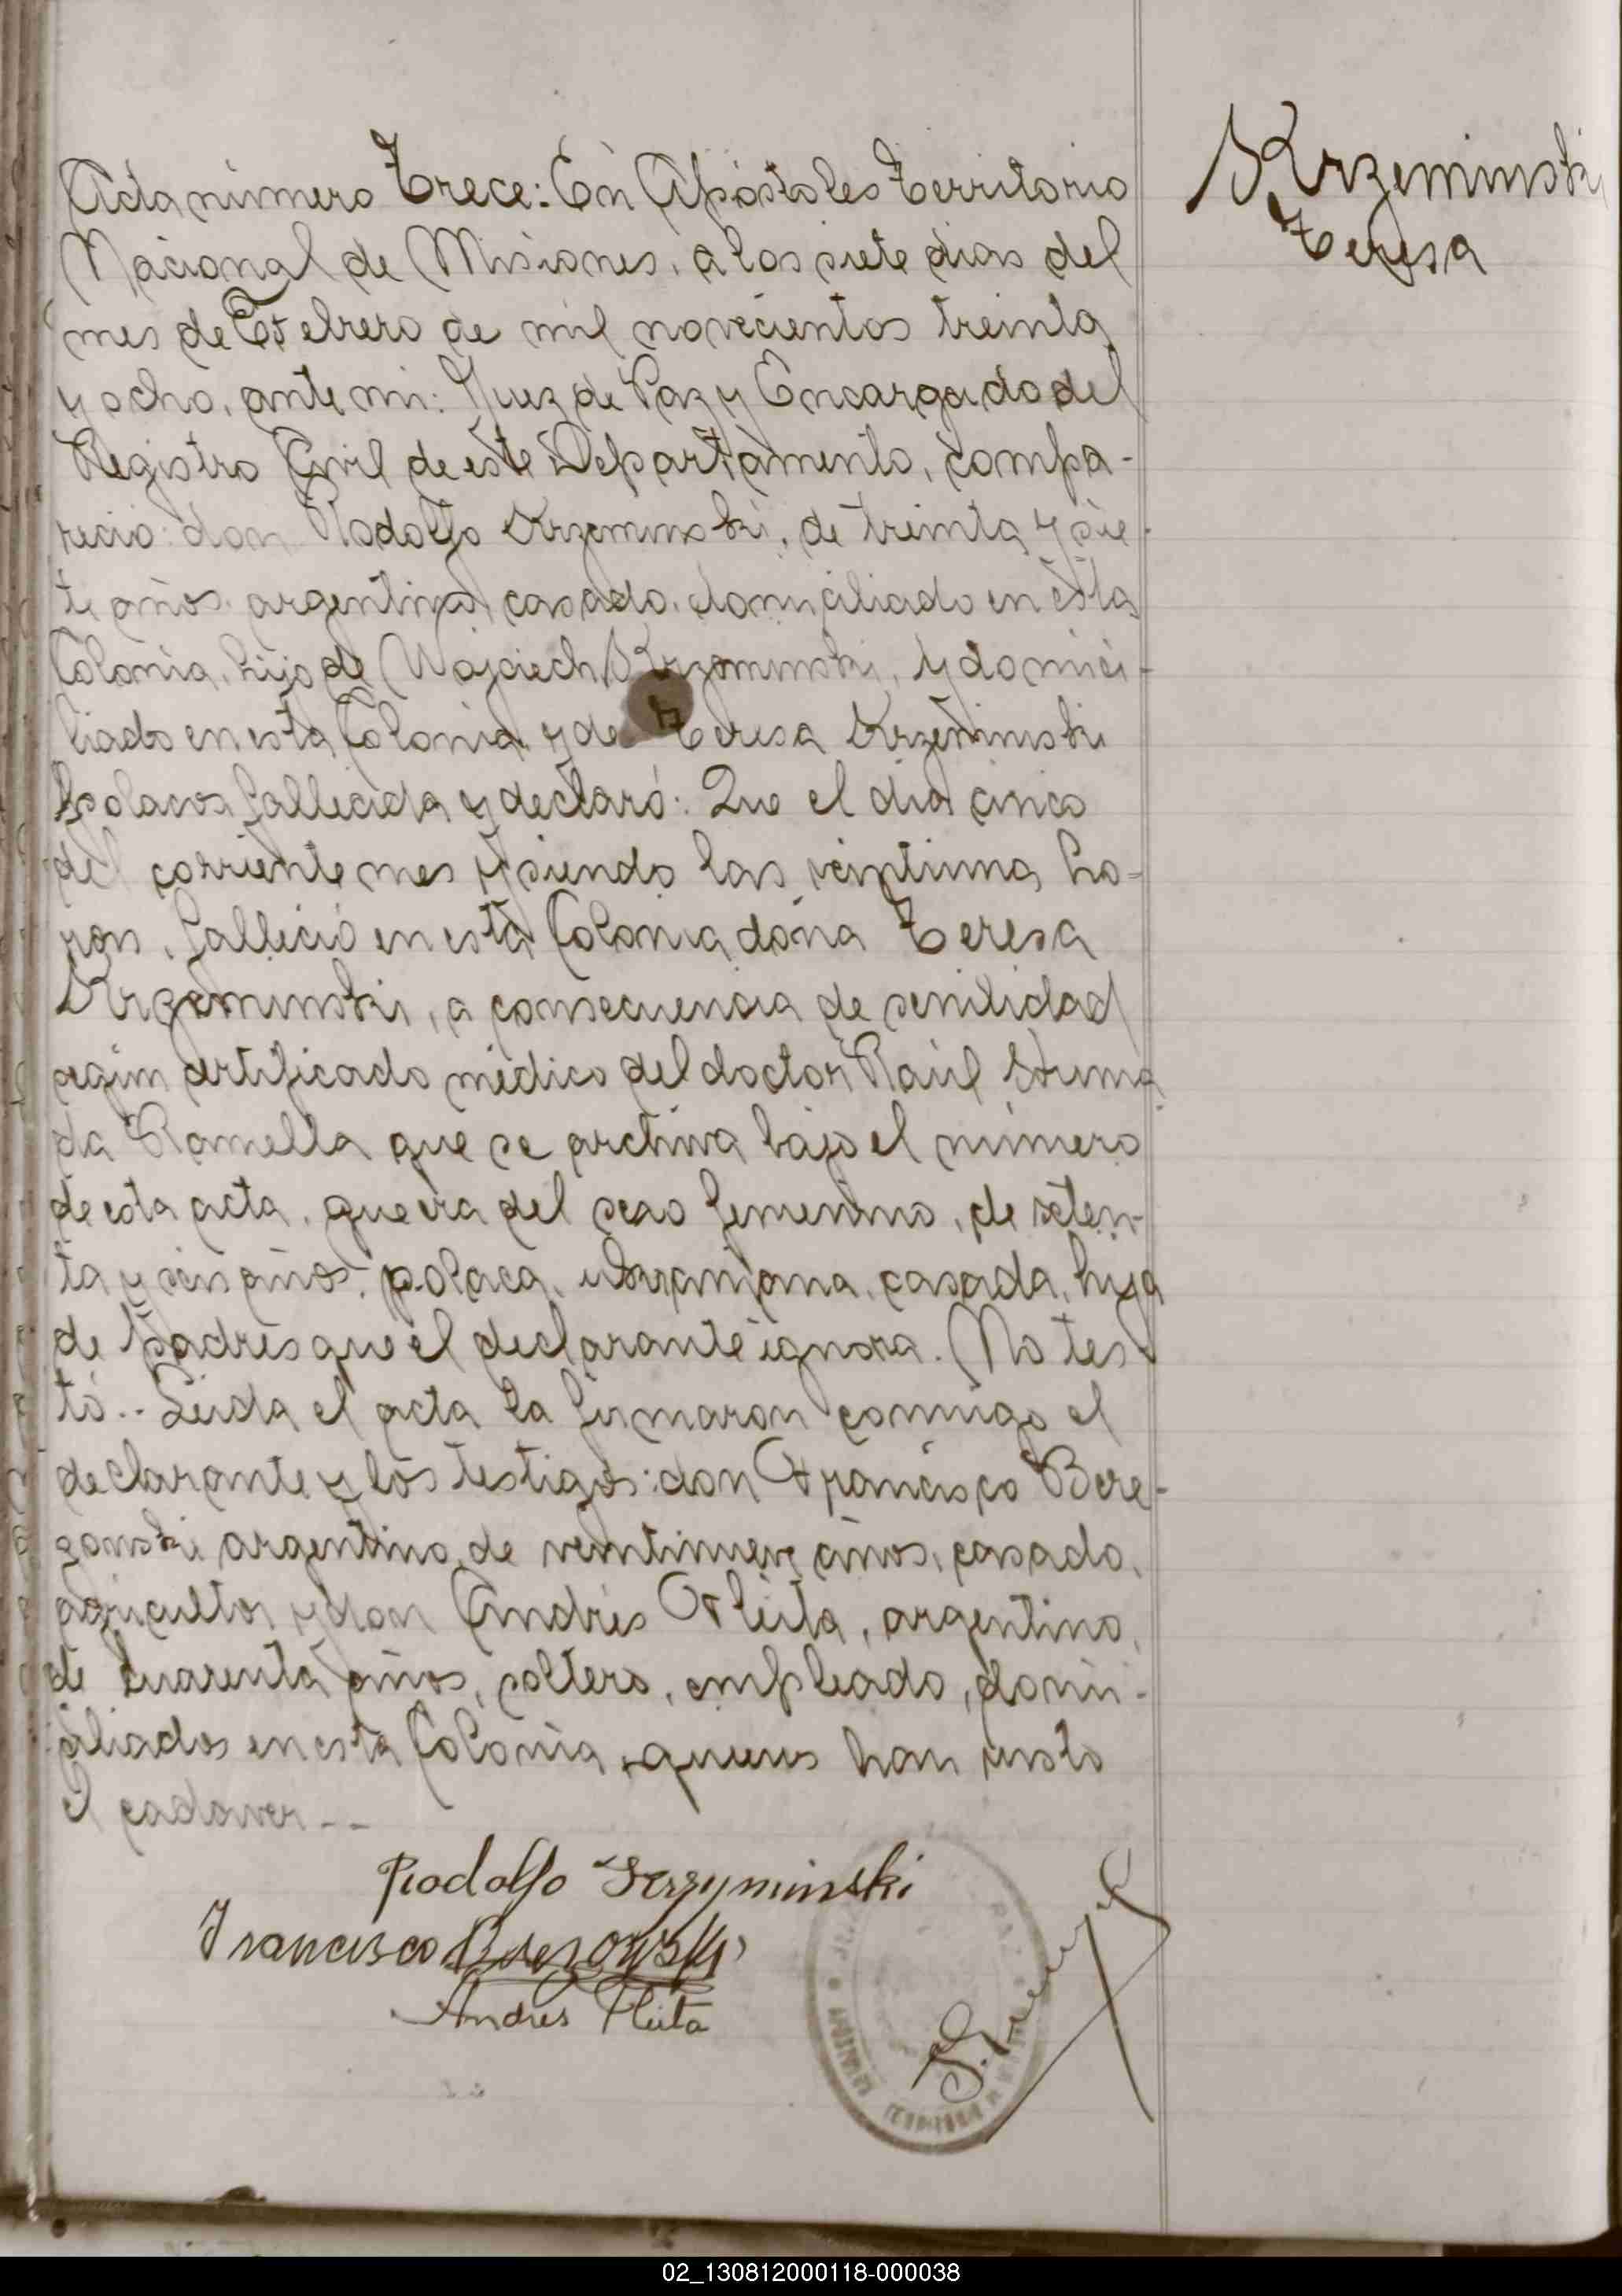 Krzeminski
Teresa
Acta número Trece: En Apóstoles Territorio
Nacional de Misiones, a los siete dias del
mes de Febrero de mil novecientos treinta
y ocho, ante mi: Juez de Paz y Encargado del
Registro Civil de este Departamento, compa-
reció: don Rodolfo Krzeminski, de treinta y sie-
te años, argentino, casado, domiciliado en esta
Colonia, hijo de Wojciech Krzeminski, y domici-
liado en esta Colonia y de Teresa Krzeminski
polacos, fallecida y declaró: Que el dia cinco
del corriente mes y siendo las veintiuna ho-
ras, falleció en esta Colonia doña Teresa
Krzeminski, a consecuencia de senilidad
según certificado médico del doctor Raúl
Ramella que se archiva bajo el número
de esta acta, que era del sexo femenino, de seten-
ta y seis años, polaca, ukraniana, casada, hija
de padres que el declarante ignora. No tes-
tó.- Leida el acta la firmaron conmigo el
declarante y los testigos: don Francisco Bere-
zonski argentino, de veintinueve años, casado,
agricultor y don Andrés Fleita, argentino,
de cuarenta años, soltero, empleado, domi-
ciliados en esta Colonia, quienes han visto
el cadaver --
Rodolfo
Francisco
Andres Fleita
02_130812000118-000038